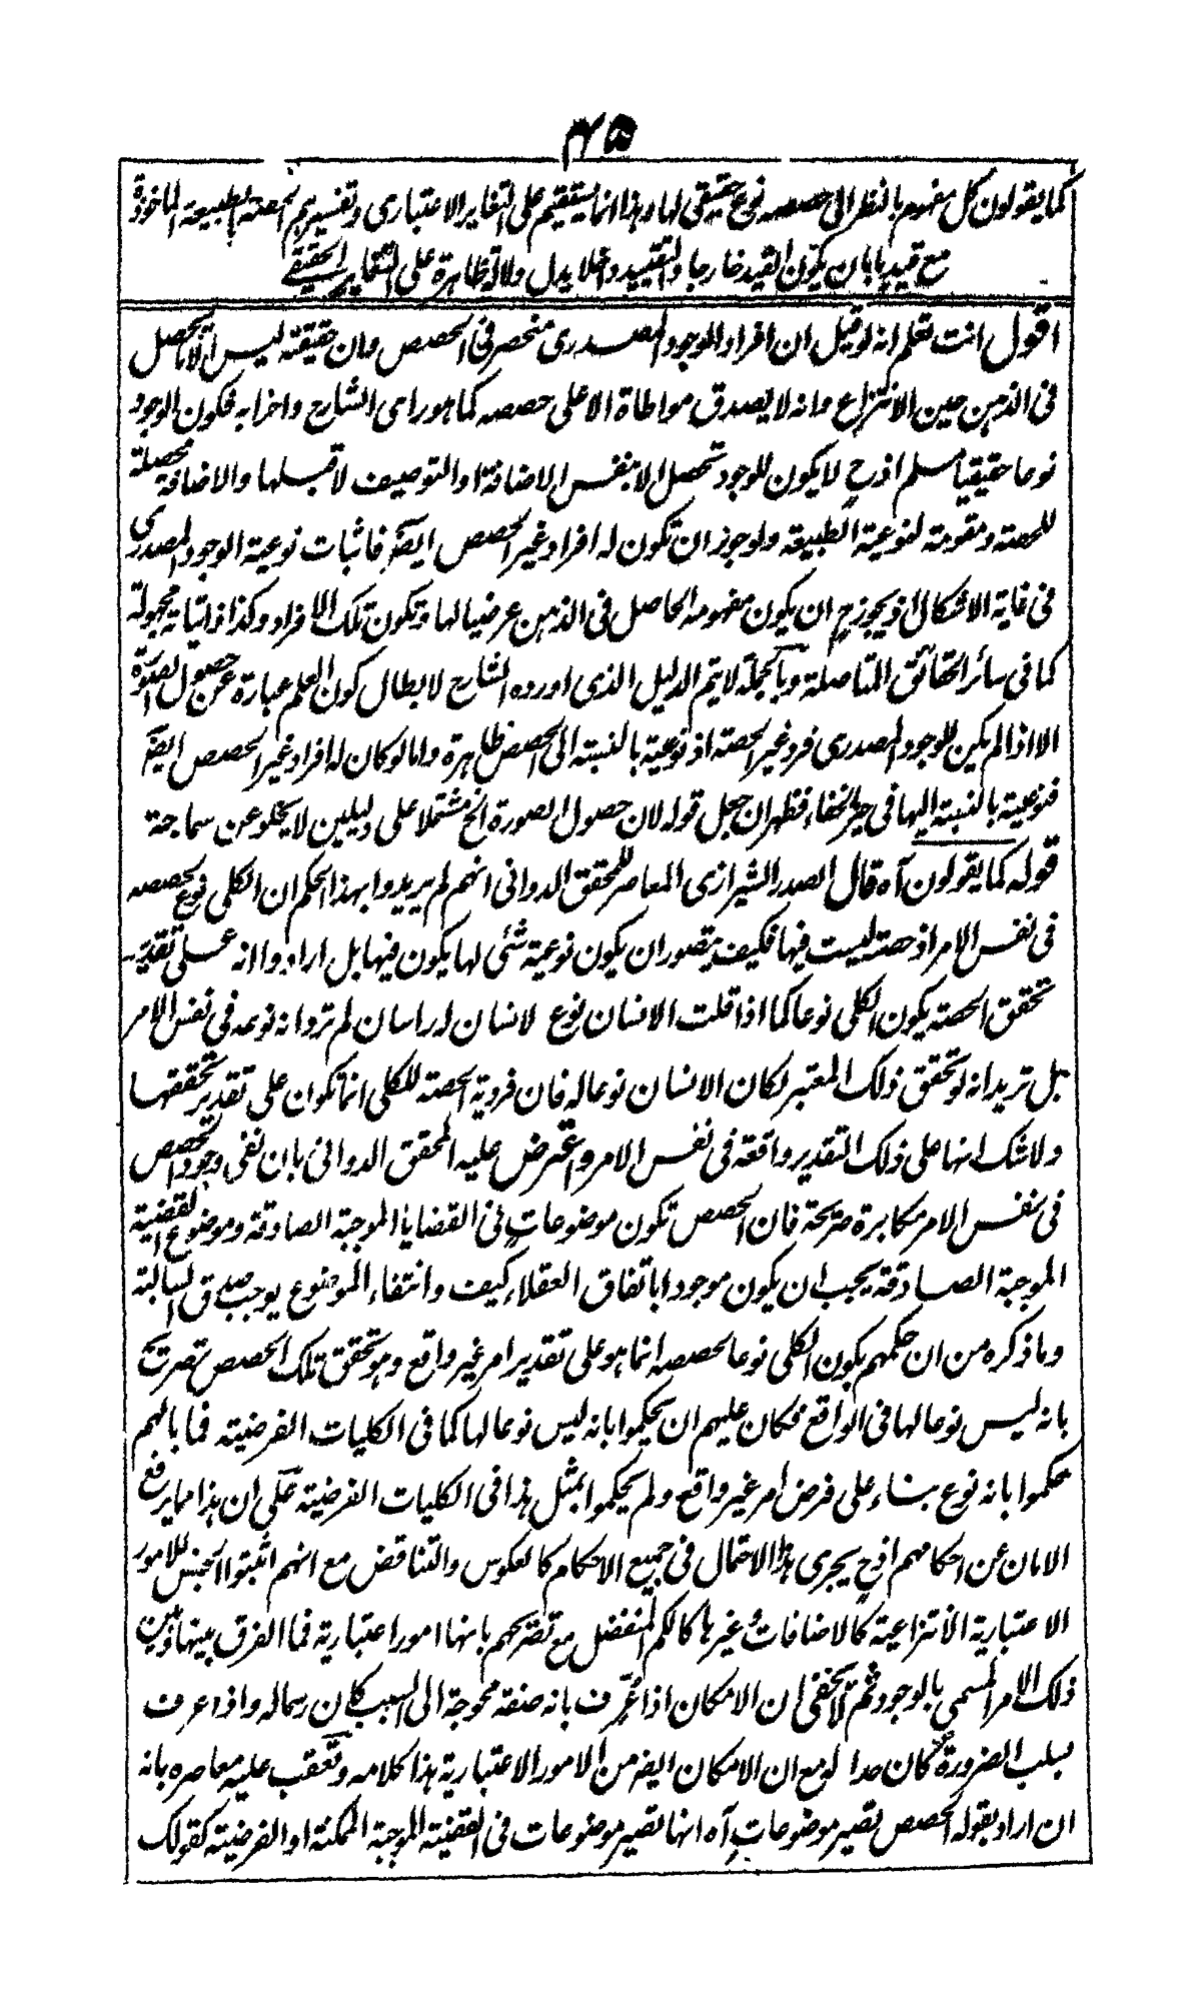 ٤٥
كما يقولون كل مفهوم بالنظر الى حصصه نوع حقيقى لها وهذا انما يستقيم على التغاير الاعتبارى وتفسيرهم الحصة بالطبيعة الماخوذة
مع قيد ما بان يكون القيد خارجا والتقييد داخلا يدل دلالة ظاهرة على التغاير الحقيقى
اقول انت تعلم انه لو قيل ان افراد الوجود المصدرى منحصر فى الحصص وان حقيقته ليس الا ما يحصل
فى الذهن حين الانتزاع وانه لا يصدق مواطاة الا على حصصه كما هو راى الشارح واضرابه فكون الوجود
نوعا حقيقيا مسلم اذ ح لا يكون للوجود تحصل الا بنفس الاضافة او التوصيف لا قبلها والاضافة محصلة
للحصة ومقومة لنوعية الطبيعة ولو جوز ان تكون له افراد غير الحصص ايضا فاثبات نوعية الوجود المصدرى
فى غاية الاشكال اذ يجوز ح ان يكون مفهومه الحاصل فى الذهن عرضيا لها وتكون تلك الافراد وكذا ذاتياته مجهولة
كما فى سائر الحقائق المتاصلة وبالجملة لا يتم الدليل الذى اورده الشارح لابطال كون العلم عبارة عن حصول الصورة
الا اذا لم يكن للوجود المصدرى فرد غير الحصة اذ نوعية بالنسبة الى الحصص ظاهرة واما لو كان له افراد غير الحصص ايضا
فنوعية بالنسبة اليها فى حيز الخفاء فظهر ان جعل قوله لان حصول الصورة الخ مشتملا على دليلين لا يخلو عن سماجة
قوله كما يقولون آه قال الصدر الشيرازى المعاصر للمحقق الدوانى انهم لم يريدوا بهذا الحكم ان الكلى نوع لحصصه
فى نفس الامر اذ حصته ليست فيها فكيف يتصور ان يكون نوعية شئ لها يكون فيها بل ارادوا انه على تقدير
تحقق الحصة يكون الكلى نوعا كما اذا قلت الانسان نوع لانسان له راسان لم ترد انه نوعه فى نفس الامر
بل تريد انه لو تحقق ذلك المعتبر لكان الانسان نوعا له فان فردية الحصة للكلى انما تكون على تقدير تحققها
ولا شك انها على ذلك التقدير واقعة فى نفس الامر واعترض عليه المحقق الدوانى بان نفى وجود الحصص
فى نفس الامر مكابرة صريحة فان الحصص تكون موضوعات فى القضايا الموجبة الصادقة وموضوع القضية
الموجبة الصادقة يجب ان يكون موجودا باتفاق العقلاء كيف وانتفاء الموضوع يوجب صدق السالبة
وما ذكره من ان حكمهم بكون الكلى نوعا لحصصه انما هو على تقدير امر غير واقع وهو تحقق تلك الحصص تصريح
بانه ليس نوعا لها فى الواقع فكان عليهم ان يحكموا بانه ليس نوعا لها كما فى الكليات الفرضية فما بالهم
حكموا بانه نوع بناء على فرض امر غير واقع ولم يحكموا بمثل هذا فى الكليات الفرضية على ان هذا مما يرفع
الامان عن احكامهم اذ ح يجرى هذا الاحتمال فى جميع الاحكام كالعكوس والتناقض مع انهم اثبتوا الجنس للامور
الاعتبارية الانتزاعية كالاضافات وغيرها كالكم المنفصل مع تصريحهم بانها امور اعتبارية فما الفرق بينها وبين
ذلك الامر المسمى بالوجود ثم لا يخفى ان الامكان اذا عرف بانه صفة محوجة الى السبب كان رسما له واذا عرف
بسلب الضرورة كان حدا له مع ان الامكان ايضا من الامور الاعتبارية هذا كلامه وتعقب عليه معاصره بانه
ان اراد بقوله الحصص تصير موضوعات آه انها تصير موضوعات فى القضية الموجبة الممكنة او الفرضية كقولك